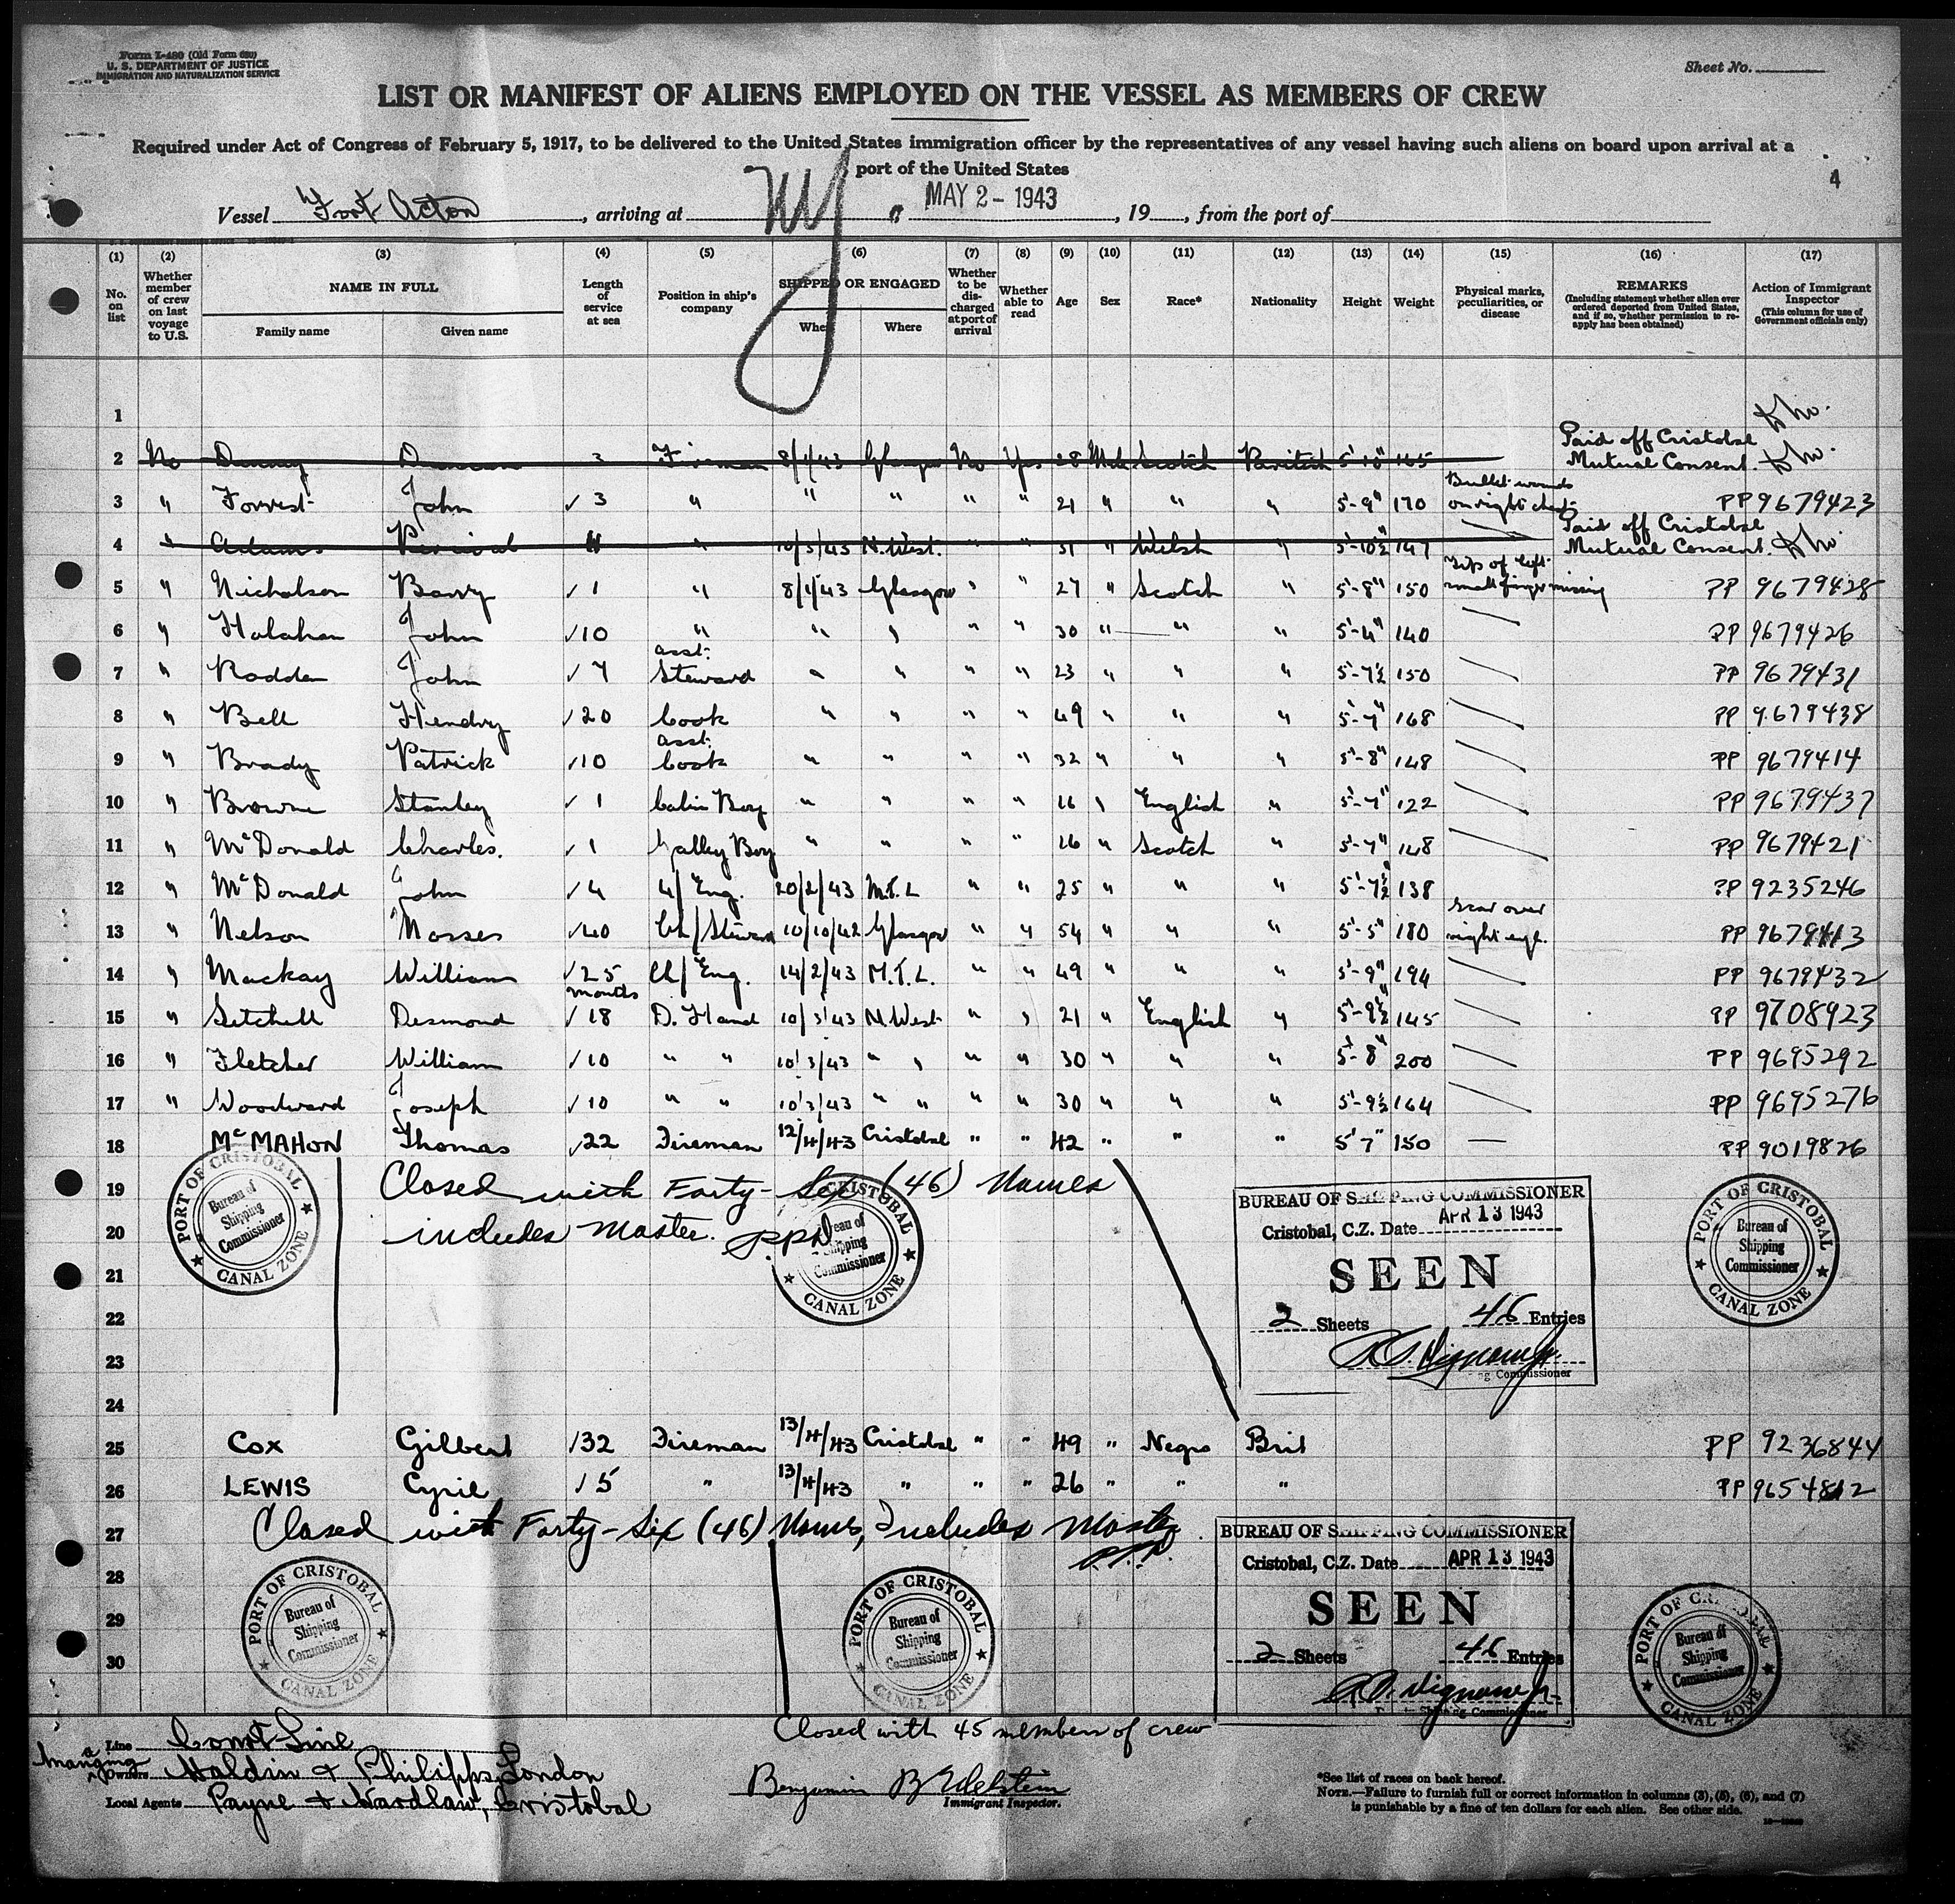 Form I-480 (Old Form 680)
U. S. DEPARTMENT OF JUSTICE
IMMIGRATION AND NATURALIZATION SERVICE
Sheet No.
LIST OR MANIFEST OF ALIENS EMPLOYED ON THE VESSEL AS MEMBERS OF CREW
Required under Act of Congress of February 5, 1917, to be delivered to the United States immigration officer by the representatives of any vessel having such aliens on board upon arrival at a
port of the United States
4
Vessel Fort Acton, arriving at NY, MAY 2 - 1943, 19, from the port of
(1) (2) (3) (4) (5) (6) (7) (8) (9) (10) (11) (12) (13) (14) (15) (16) (17)
No. on list
Whether member of crew on last voyage to U.S.
NAME IN FULL
Family name Given name
Length of service at sea
Position in ship's company
SHIPPED OR ENGAGED
When Where
Whether to be discharged at port of arrival
Whether able to read
Age
Sex
Race*
Nationality
Height
Weight
Physical marks, peculiarities, or disease
REMARKS
(Including statement whether alien ever ordered deported from United States, and if so, whether permission to re-apply has been obtained)
Action of Immigrant Inspector
(This column for use of Government officials only)
1
2 No Duncan 3 Fireman 8/1/43 Glasgow No Yes 28 Male Scotch British 5'-10" 165 Paid off Cristobal Mutual Consent.
3 " Forrest John √3 " " " " " 21 " " " 5'-9" 170 Bullet wounds on right chest PP 9679423
4 " Adams Percival " 10/3/43 N.West. " " 31 " Welsh " 5'-10½" 147 Paid off Cristobal Mutual Consent.
5 " Nicholson Barry √1 " 8/1/43 Glasgow " " 27 " Scotch " 5'-8" 150 Tip of left small finger missing PP 9679428
6 " Holahan John √10 " " " " " 30 " " " 5'-4" 140 PP 9679426
7 " Rodden John √7 asst. Steward " " " " 23 " " " 5'-7½ 150 PP 9679431
8 " Bell Hendry √20 Cook " " " " 49 " " " 5'-7" 168 PP 9679438
9 " Brady Patrick √10 asst. Cook " " " " 32 " " " 5'-8" 148 PP 9679414
10 " Browne Stanley √1 Cabin Boy " " " " 16 " English " 5'-7" 122 PP 9679437
11 " McDonald Charles. √1 Galley Boy " " " " 16 " Scotch " 5'-7" 148 PP 9679421
12 " McDonald John √4 4/Eng. 20/2/43 M.T.L " " 25 " " " 5'-7½" 138 PP 9235246
13 " Nelson Mosses √40 Ch/Steward 10/10/42 Glasgow " " 54 " " " 5'-5" 180 Scar over right eye. PP 9679413
14 " Mackay William √25 Ch/Eng. 14/2/43 M.T.L. " " 49 " " " 5'-9" 194 PP 9679432
15 " Setchell Desmond √18 months D. Hand 10/3/43 N.West " " 21 " English " 5'-9½" 145 PP 9708923
16 " Fletcher William √10 " " 10/3/43 " " " " 30 " " " 5'-8" 200 PP 9695292
17 " Woodward Joseph √10 " " 10/3/43 " " " " 30 " " " 5'-9½ 164 PP 9695276
18 McMAHON Thomas √22 Fireman 12/4/43 Cristobal " " 42 " " " 5'7" 150 — PP 9019826
19 Closed with Forty-Six (46) Names
20 includes Master.
21
22
23
24
PORT OF CRISTOBAL Bureau of Shipping Commissioner CANAL ZONE
PORT OF CRISTOBAL Bureau of Shipping Commissioner CANAL ZONE
BUREAU OF SHIPPING COMMISSIONER
Cristobal, C.Z. Date APR 13 1943
SEEN
2 Sheets 46 Entries
Shipping Commissioner
PORT OF CRISTOBAL Bureau of Shipping Commissioner CANAL ZONE
25 Cox Gilbert √32 Fireman 13/4/43 Cristobal " " 49 " Negro Brit PP 9236844
26 LEWIS Cyril √5 " 13/4/43 " " " 26 " " " PP 9654812
27 Closed with Forty-Six (46) Names, Includes Master
28
29
30
PORT OF CRISTOBAL Bureau of Shipping Commissioner CANAL ZONE
PORT OF CRISTOBAL Bureau of Shipping Commissioner CANAL ZONE
BUREAU OF SHIPPING COMMISSIONER
Cristobal, C.Z. Date APR 13 1943
SEEN
2 Sheets 46 Entries
Shipping Commissioner
PORT OF CRISTOBAL Bureau of Shipping Commissioner CANAL ZONE
Closed with 45 members of crew
Line Line
Managing Owners Haldin & Philipps, London
Local Agents Payne & Wardlaw, Cristobal
Benjamin B Edelstein
Immigrant Inspector.
*See list of races on back hereof.
NOTE.—Failure to furnish full or correct information in columns (3), (5), (6), and (7)
is punishable by a fine of ten dollars for each alien. See other side.